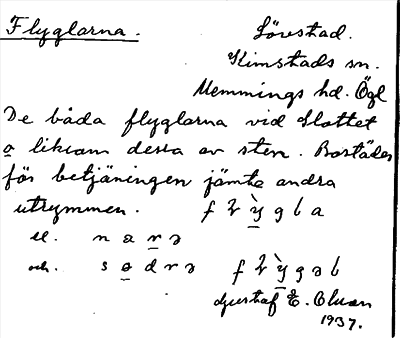 Flyglarna. Lövestad.
Kimstads sn.
Memmings hd. Ögl
De båda flyglarna vid Slottet
o liksom dessa av sten. Bostäder
för betjäningen jämte andra
utrymmen.
el. n a r ə
och. s ə d r ə
Gustaf E.
1937.